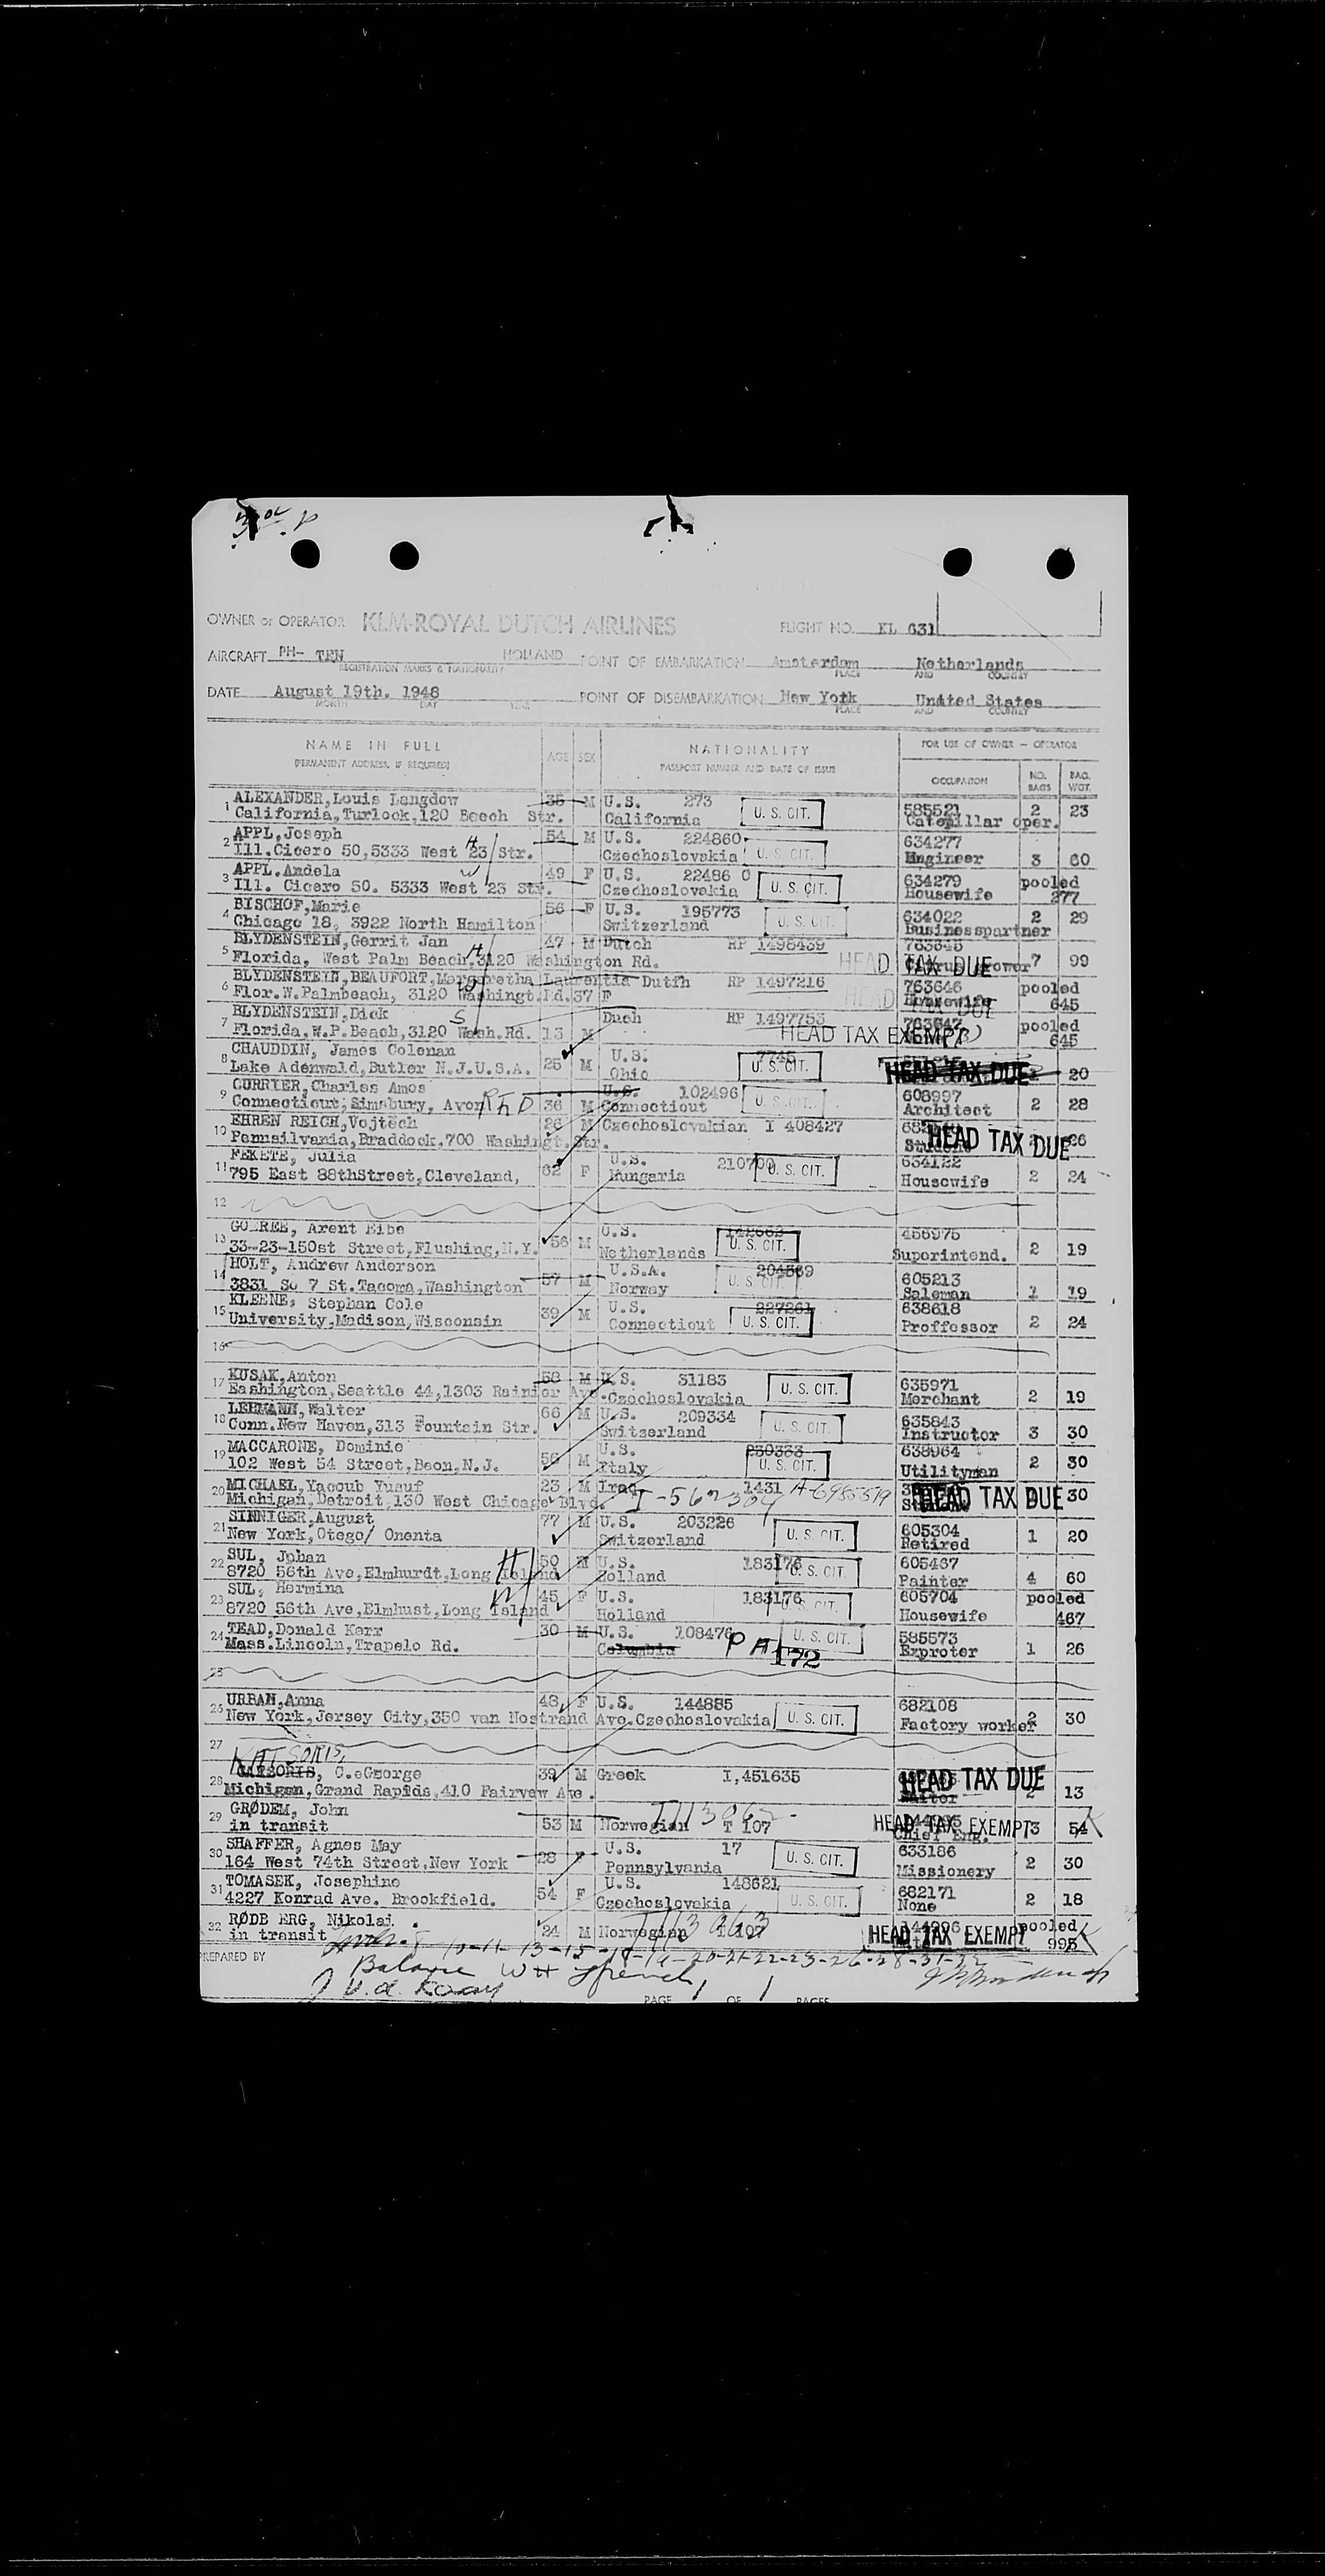 OWNER or OPERATOR KLM-ROYAL DUTCH AIRLINES FLIGHT NO. KL 631
AIRCRAFT PH- TEN HOLLAND POINT OF EMBARKATION Amsterdam Netherlands
REGISTRATION MARKS & NATIONALITY PLACE AND COUNTRY
DATE August 19th. 1948 POINT OF DISEMBARKATION New York United States
MONTH DAY YEAR PLACE AND COUNTRY
NAME IN FULL AGE SEX NATIONALITY FOR USE OF OWNER - OPERATOR
(PERMANENT ADDRESS, IF REQUIRED) PASSPORT NUMBER AND DATE OF ISSUE OCCUPATION NO. BAGS BAG. WGT.
1 ALEXANDER, Louis Langdow 35 M U.S. 273 U. S. CIT. 585521 2 23
California, Turlock, 120 Beech Str. California Catepillar oper.
2 APPL, Joseph 54 M U.S. 224860 634277
Ill. Cicero 50, 5333 West 23 Str. H Czechoslovakia U. S. CIT. Engineer 3 60
3 APPL. Andela W 49 F U.S. 22486 0 634279 pooled
Ill. Cicero 50. 5333 West 23 Str. Czechoslovakia U. S. CIT. Housewife 277
4 BISCHOF, Marie 56 F U.S. 195773 U. S. CIT. 634022 2 29
Chicago 18, 3922 North Hamilton Switzerland Businesspartner
5 BLYDENSTEIN, Gerrit Jan H 47 M Dutch RP 1498439 763645
Florida, West Palm Beach, 3120 Washington Rd. HEAD TAX DUE 7 99
6 BLYDENSTEIN, BEAUFORT, Margaretha Laurentia Dutfh RP 1497216 763646 pooled
Flor. W. Palmbeach, 3120 Washingt. Rd. 37 F W HEAD TAX DUE Housewife 645
7 BLYDENSTEIN, Dick S Duch RP 1497753 763647 pooled
Florida, W.P. Beach, 3120 Wash. Rd. 13 M HEAD TAX EXEMPT 645
8 CHAUDDIN, James Coleman 25 M U.S. 7745 HEAD TAX DUE
Lake Adenwald, Butler N.J.U.S.A. Ohio U. S. CIT. 20
9 CURRIER, Charles Amos U.S. 102496 608997
Connecticut, Simsbury, Avon RFD 36 M Connecticut U. S. CIT. Architect 2 28
10 EHREN REICH, Vojtech 26 M Czechoslovakian I 408427 HEAD TAX DUE
Pennsilvania, Braddock. 700 Washingt. Str. Student 26
11 FEKETE, Julia 62 F U.S. 210700 U. S. CIT. 634122
795 East 88thStreet, Cleveland, Hungaria Housewife 2 24
12
13 Arent Eibe 56 M U.S. 142662 456975
33-23-150st Street, Flushing, N.Y. Netherlands U. S. CIT. Superintend. 2 19
14 HOLT, Andrew Anderson 57 M U.S.A. 204569 605213
3831 So 7 St. Tacoma, Washington Norway U. S. CIT. Saleman 1 19
15 KLEENE, Stephan Cole 39 M U.S. 227261 638618
University, Madison, Wisconsin Connecticut U. S. CIT. Proffessor 2 24
16
17 KUSAK, Anton 58 M U.S. 31183 635971
Eashington, Seattle 44, 1303 Rainier Ave. Czechoslovakia U. S. CIT. Merchant 2 19
18 LEHMANN, Walter 66 M U.S. 209334 635843
Conn. New Haven, 313 Fountain Str. Switserland U. S. CIT. Instructor 3 30
19 MACCARONE, Dominic 56 M U.S. 230333 638964
102 West 54 Street, Beon, N.J. Italy U. S. CIT. Utilityman 2 30
20 MICHAEL, Yacoub Yusuf 23 M Iraq 1431 A-6985579
Michigan, Detroit, 130 West Chicago Blvd. I-562304 HEAD TAX DUE 30
21 SINNIGER, August 77 M U.S. 203226 605304
New York, Otego/ Onenta Switzerland U. S. CIT. Retired 1 20
22 SUL, Johan H 50 M U.S. 183176 605467
8720 56th Ave, Elmhurdt, Long Island Holland U. S. CIT. Painter 4 60
23 SUL, Hermina W 45 F U.S. 183176 605704 pooled
8720 56th Ave, Elmhust, Long Island Holland U. S. CIT. Housewife 467
24 TEAD, Donald Kerr 30 M U.S. 108476 U. S. CIT. 585573
Mass. Lincoln, Trapelo Rd. Columbia PA 172 Exproter 1 26
25
26 URBAN, Anna 48 F U.S. 144885 682108
New York, Jersey City, 350 van Nostrand Ave. Czechoslovakia U. S. CIT. Factory worker 2 30
27
KATSORIS,
28 C.eGeorge 39 M Greek I,451635 HEAD TAX DUE
Michigan, Grand Rapids, 410 Fairvew Ave. 2 13
29 GRØDEM, John
in transit 53 M Norwegian T 107 HEAD TAX EXEMPT Chief Eng. 3 54
30 SHAFFER, Agnes May 28 F U.S. 17 633186
164 West 74th Street, New York Pennsylvania U. S. CIT. Missionery 2 30
31 TOMASEK, Josephine 54 F U.S. 148621 682171
4227 Konrad Ave. Brookfield. Czechoslovakia U. S. CIT. None 2 18
32 RØDB ERG, Nikolai 144996 pooled
in transit 24 M Norwegian HEAD TAX EXEMPT 995
PREPARED BY
Balance
PAGE 1 OF 1 PAGES